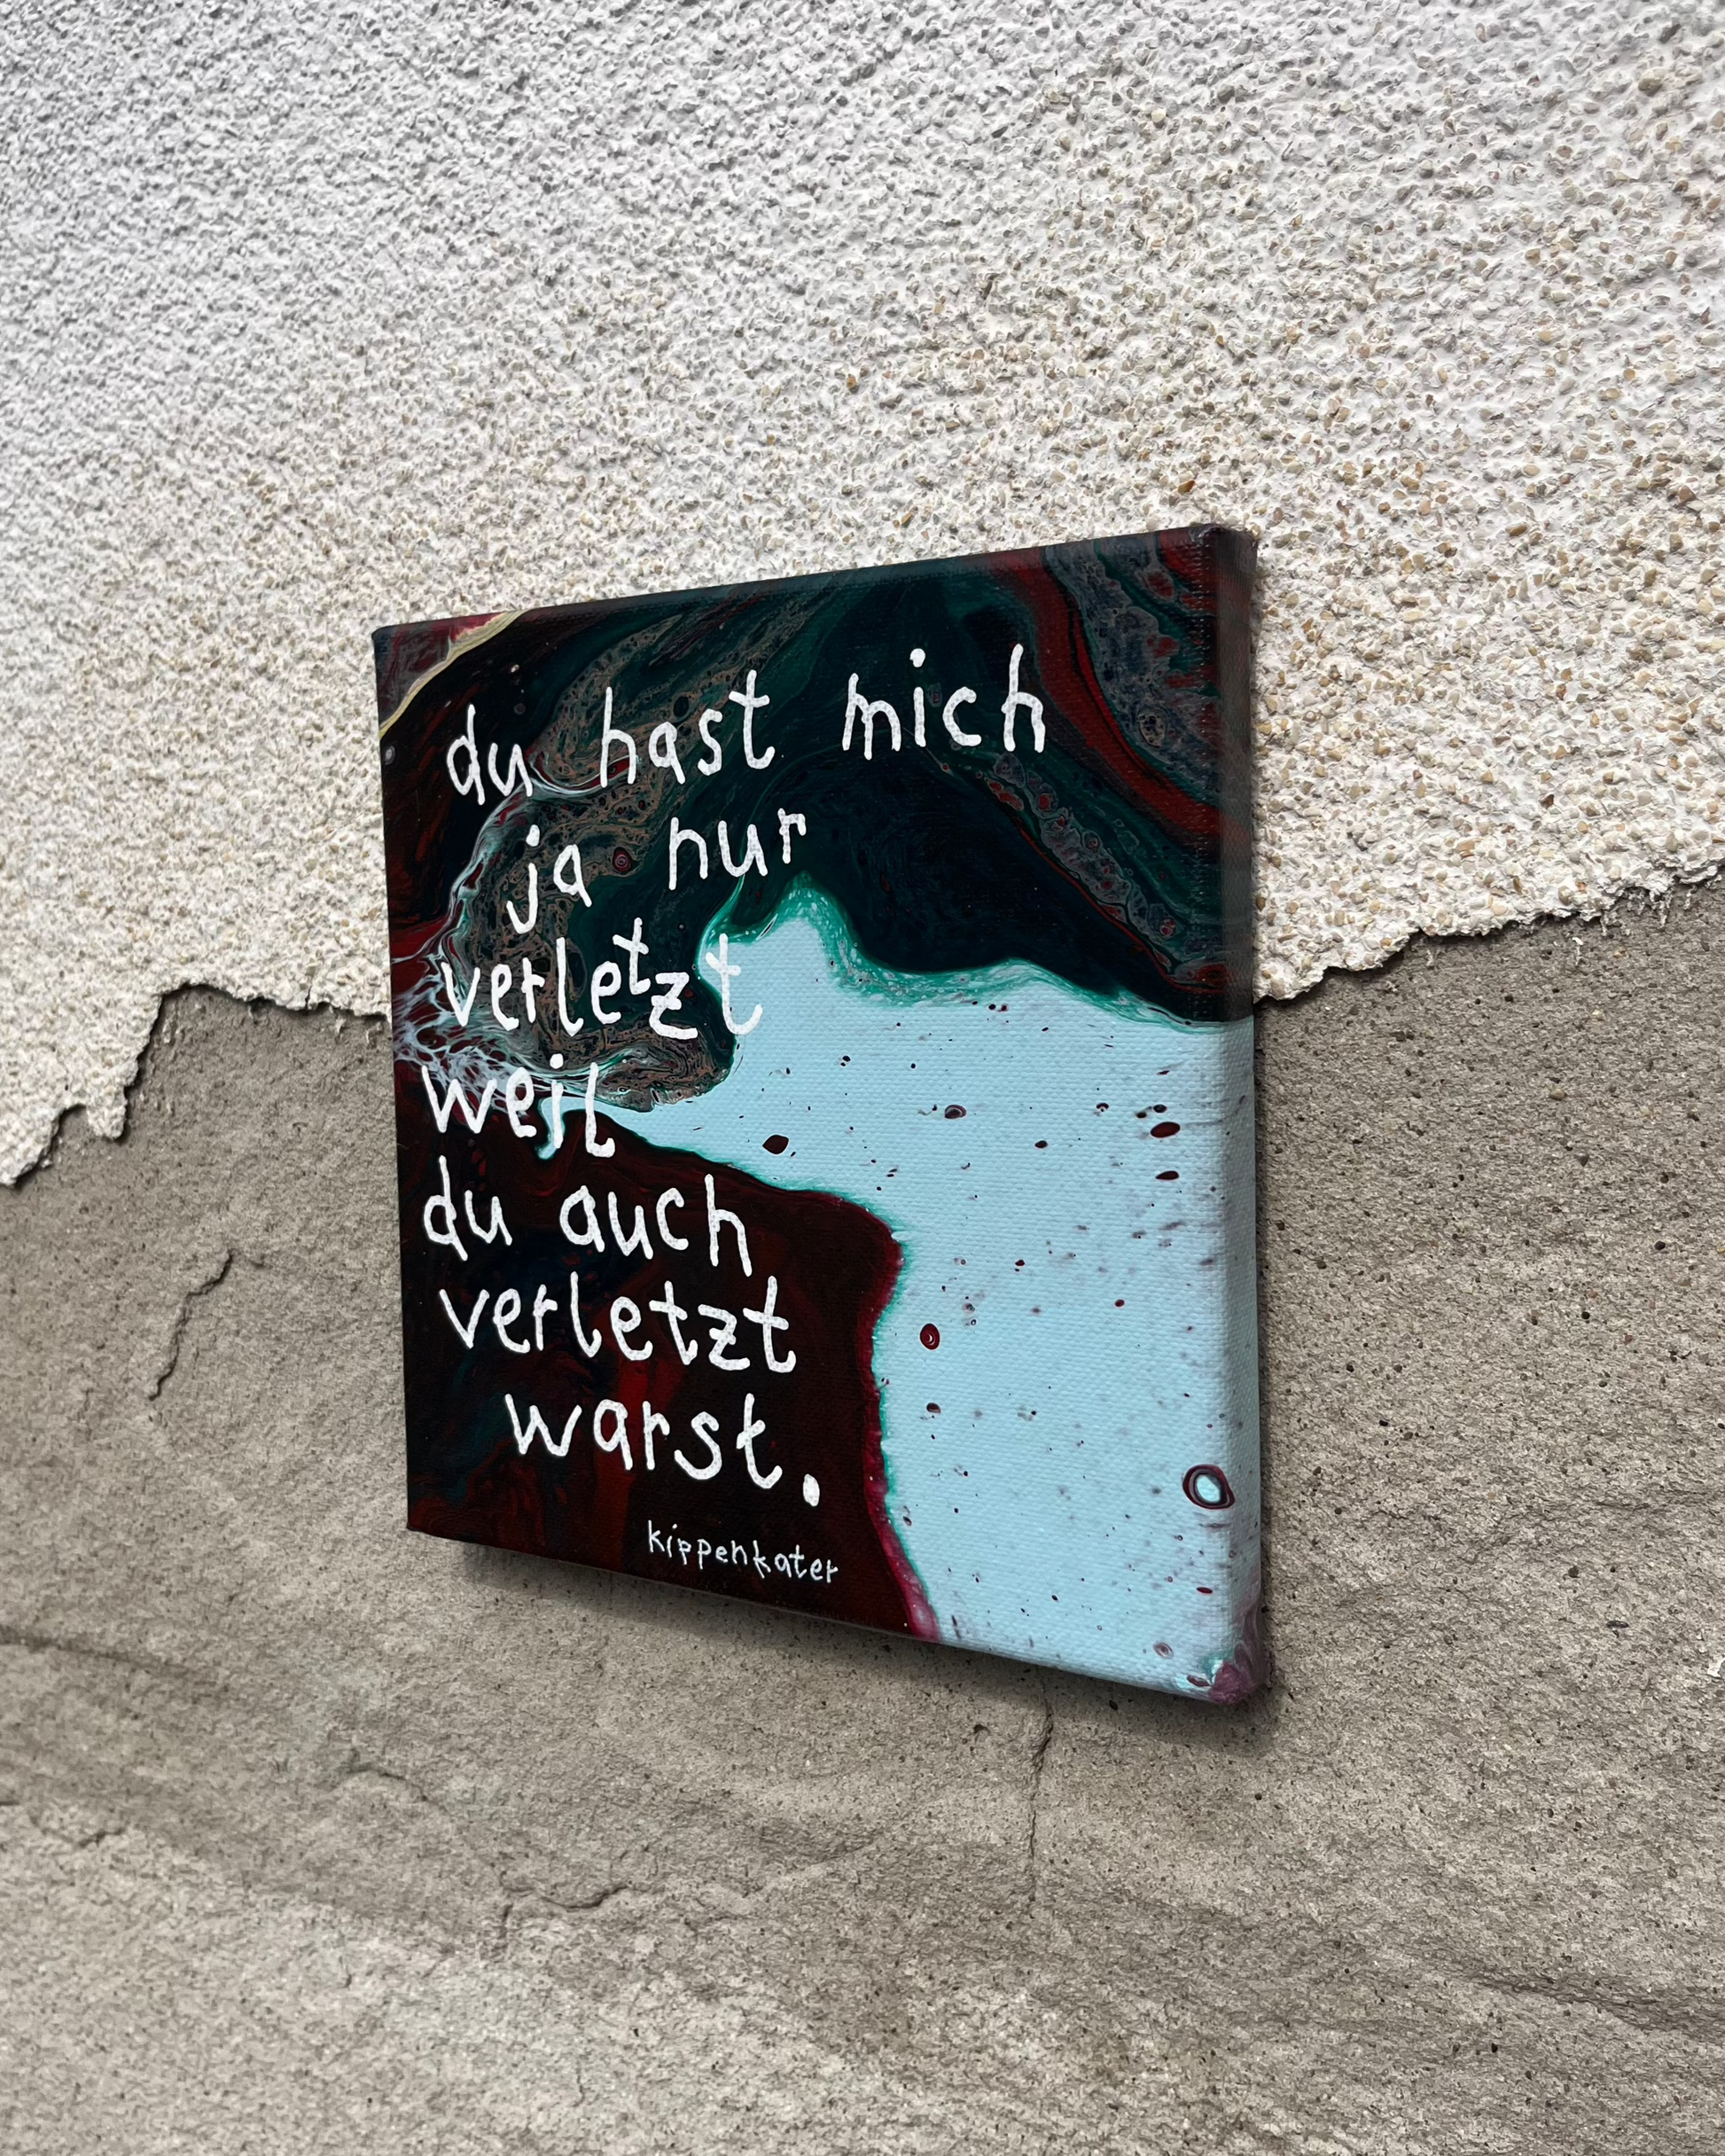 du hast mich
ja nur
verletzt
weil
du auch
verletzt
warst.
kippenkater